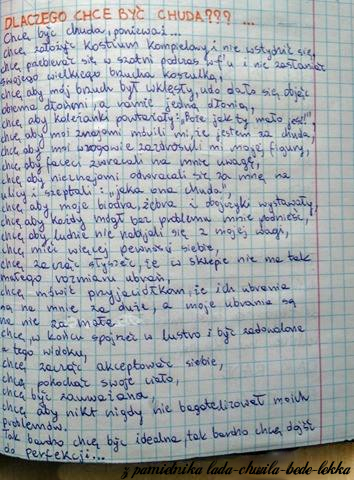 DLACZEGO CHCE BYĆ CHUDA??? ...
Chcę być chuda, ponieważ...
chcę założyć kostium kąpielowy i nie wstydzić się,
chcę przebierać się w szatni podczas wf'u i nie zasłaniać
swojego wielkiego brzucha koszulką,
chcę aby mój brzuch był wklęsły, udo dało się objąć
obiema dłońmi, a ramię jedną dłonią,
chcę aby koleżanki powtarzały: "Boże jak ty mało jesz!",
chcę aby moi znajomi mówili mi, że jestem za chuda,
chcę aby moi wrogowie zazdrościli mi mojej figury,
chcę aby faceci zwracali na mnie uwagę,
chcę aby nieznajomi odwracali się za mną na
ulicy i szeptali: "jaka ona chuda",
chcę aby moje biodra, żebra i obojczyki wystawały,
chcę aby każdy mógł bez problemu mnie podnieść,
chcę aby ludzie nie nabijali się z mojej wagi,
chcę mieć więcej pewności siebie,
chcę zacząć słyszeć, że w sklepie nie ma tak
małego rozmiaru ubrań,
chcę mówić przyjaciółkom, że ich ubrania
są na mnie za duże, a moje ubrania są
na nie za małe
chcę w końcu spojrzeć w lustro i być zadowolona
z tego widoku,
chcę zacząć akceptować siebie,
chcę pokochać swoje ciało,
chcę być zauważana,
chcę aby nikt nigdy nie bagatelizował moich
problemów.
Tak bardzo chcę być idealna, tak bardzo chcę dojść
do perfekcji...
z pamiętnika lada-chwila-bede-lekka